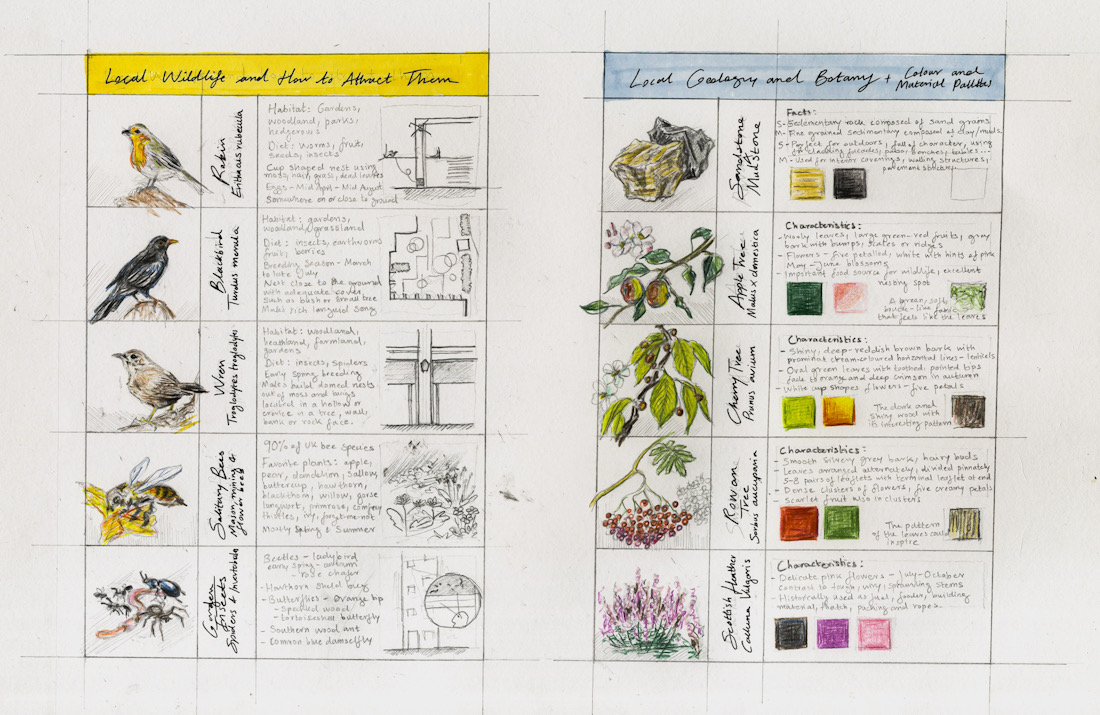 Local Wildlife and How to Attract Them
Robin
Erithacus rubecula
Habitat: Gardens,
woodland, parks,
hedgerows
Diet: worms, fruit,
seeds, insects
Cup shaped nest using
moss, hair, grass, dead leaves
Eggs - Mid April - Mid August
Somewhere on or close to ground
Blackbird
Turdus merula
Habitat: gardens,
woodland, grassland
Diet: insects, earthworms
fruit, berries
Breeding Season - March
to late July
Nest close to the ground
with adequate cover,
such as bush or small tree
Males rich languid song
Wren
Troglodytes troglodytes
Habitat: Woodland,
heathland, farmland,
gardens
Diet: insects, spiders
Early spring breeding
Males build domed nests
out of moss and twigs
located in a hollow or
crevice in a tree, wall,
bank or rock face.
Solitary Bees
Mason, mining &
flower bees
90% of UK bee species
Favorite plants: apple,
pear, dandelion, Sallow,
buttercup, hawthorn,
blackthorn, willow, gorse
lungwort, primrose, comfrey
thistles, ivy, forget-me-not
Mostly Spring & Summer
Garden
Insects
Spiders &
Beetles - ladybird
- rose chafer
- Hawthorn Shield bug
- Butterflies - Orange tip
- Speckled wood
- tortoiseshell butterfly
- Southern wood ant
- Common blue damselfly
Local Geology and Botany + Colour and
Material Palettes
Sandstone
Mudstone
Facts:
S - Sedimentary rock composed of sand grains
M - Fine grained sedimentary composed of clay/muds.
S - Perfect for outdoors, full of character, using
for cladding facades, patios, benches, tables...
M - Used for interior coverings, walling structures,
pavement
Apple Tree
Malus x domestica
Characteristics:
- Wooly leaves, large green-red fruits, grey
bark with bumps, scales or ridges
- Flowers - five petalled, white with hints of pink
May - June blossoms
- Important food source for wildlife, excellent
nesting spot
A green, soft
-like fabric
that feels like the leaves
Cherry Tree
Prunus avium
Characteristics:
- Shiny, deep-reddish brown bark with
prominent cream-coloured horizontal lines - lenticels
- Oval green leaves with toothed, pointed tips
fade to orange and deep crimson in autumn
- White cup shapes flowers - five petals
The dark and
shiny wood with
its interesting pattern
Rowan
Tree
Sorbus aucuparia
Characteristics:
- Smooth silvery grey bark, hairy buds
- leaves arranged alternately, divided pinnately
5-8 pairs of leaflets with terminal leaflet at end
- Dense clusters of flowers, five creamy petals
- Scarlet fruit also in clusters
The pattern
of the leaves could
inspire
Scottish Heather
Calluna vulgaris
Characteristics:
- Delicate pink flowers - July-October
Contrast to tough, wiry, sprawling stems
- Historically used as fuel, fodder, building
material, thatch, packing and ropes